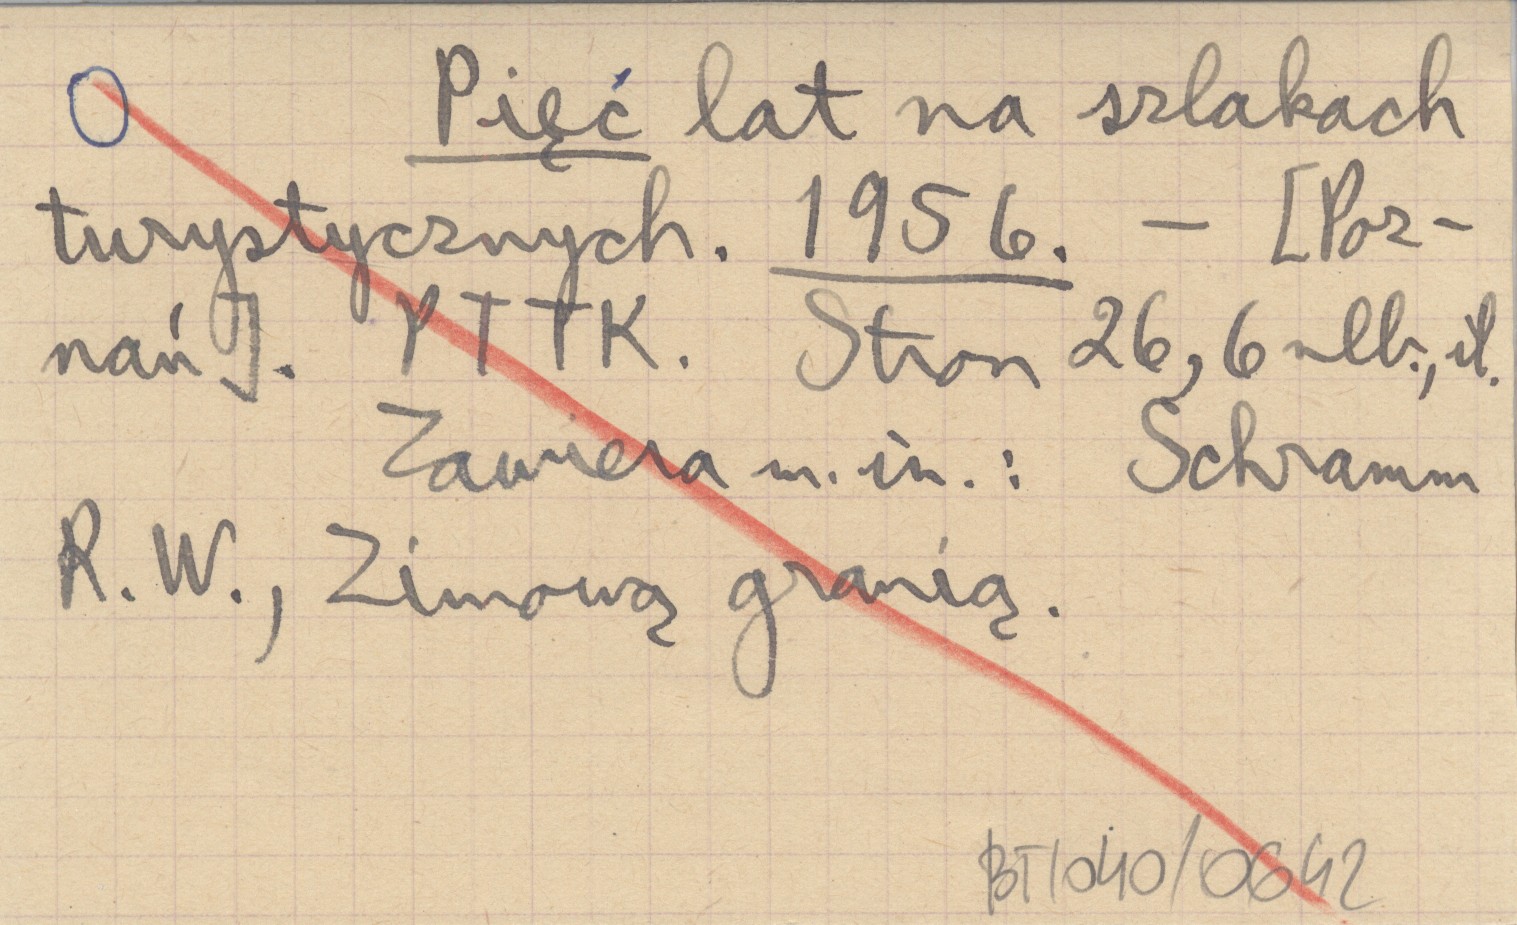 O Pięć lat na szlakach
turystycznych. 1956. – [Poz-
nań]. PTTK. Stron 26, 6 nlb., il.
Zawiera m. in.: Schramm
R. W., Zimową granią.
BT/040/0642